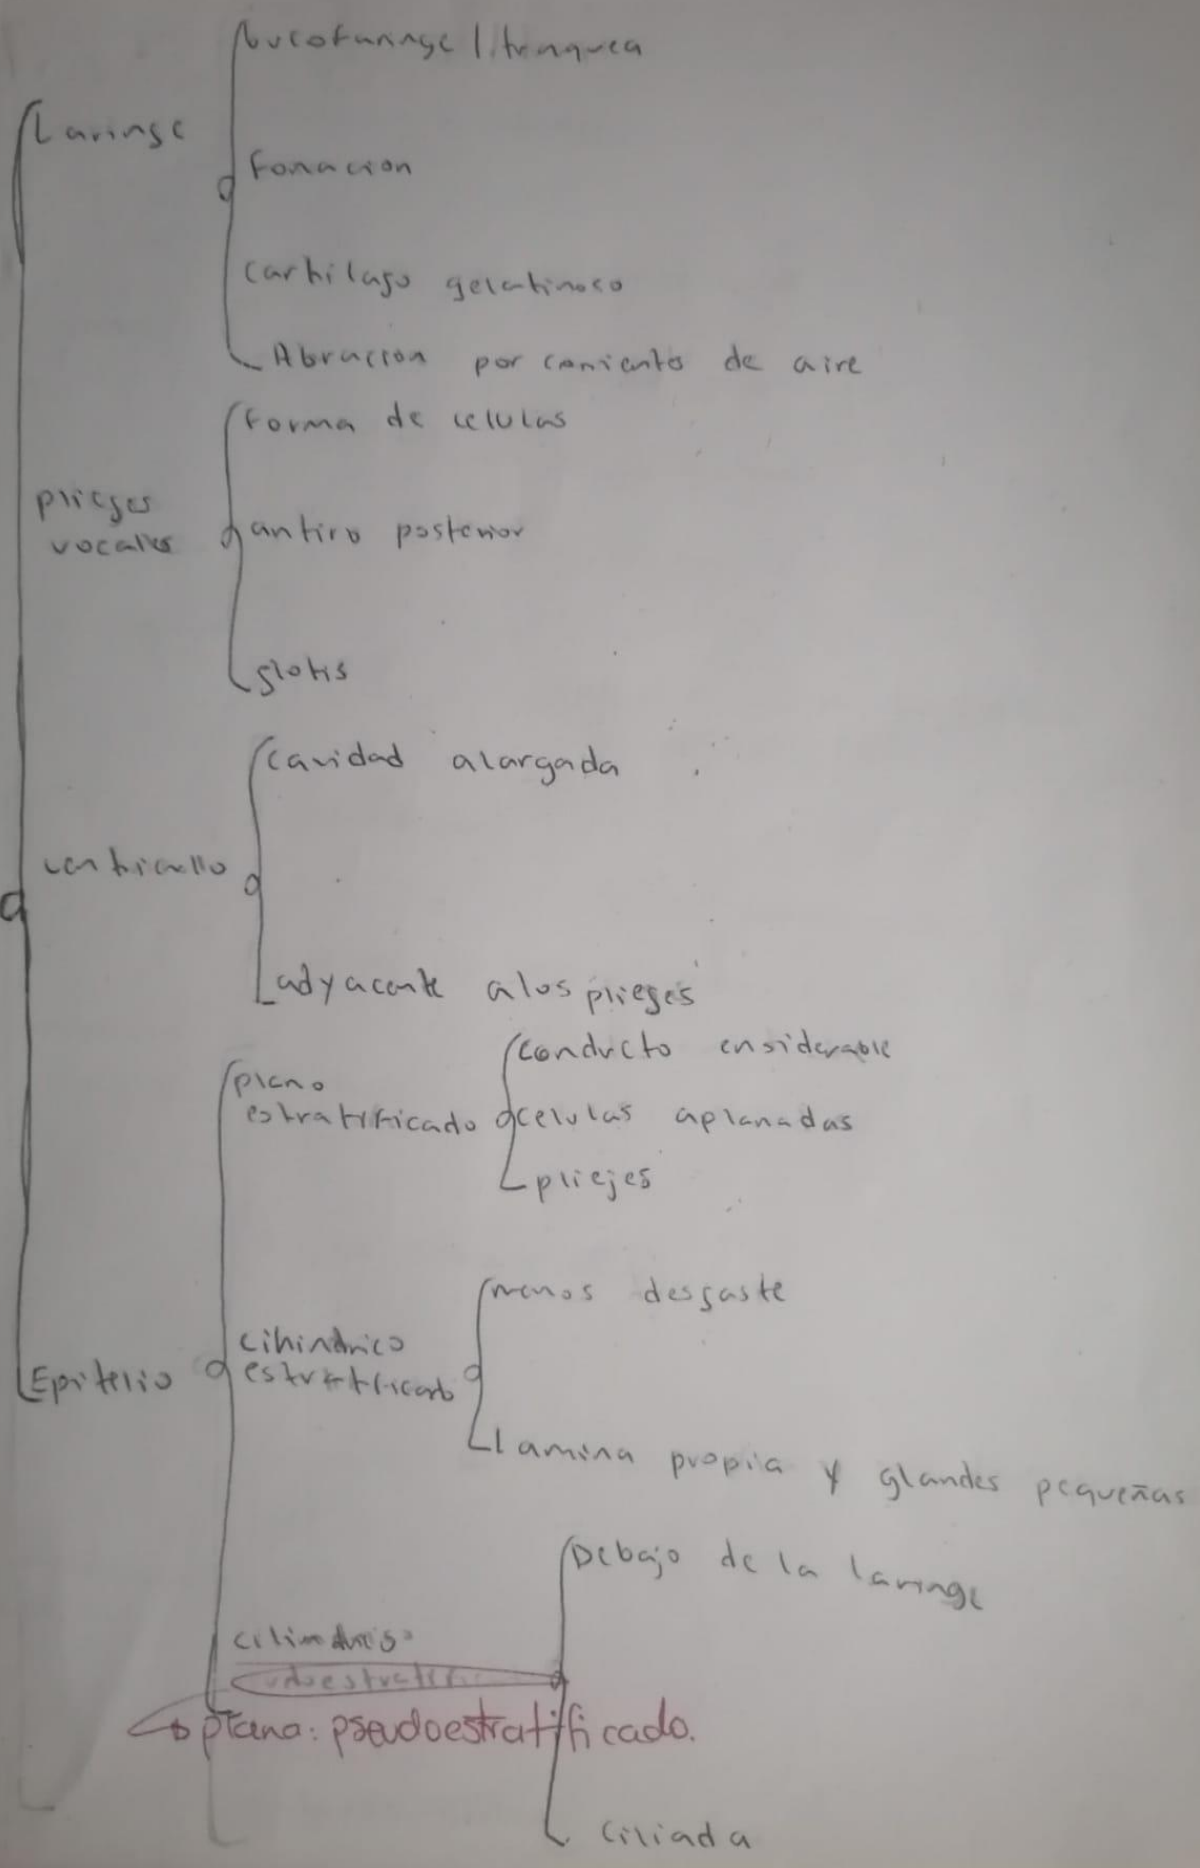 Laringe
bucofaringe / traquea
Fonacion
cartilago gelatinoso
Abracion por corriente de aire
plieges
vocales
Forma de celulas
antiro posterior
glotis
ventricullo
cavidad alargada
adyacente a los plieges
Epitelio
plano
estratificado
conducto considerable
celulas aplanadas
pliejes
cilindrico
estratificado
menos desgaste
lamina propia y glandes pequeñas
cilindrico
Debajo de la laringe
plana: pseudoestratificado.
ciliada